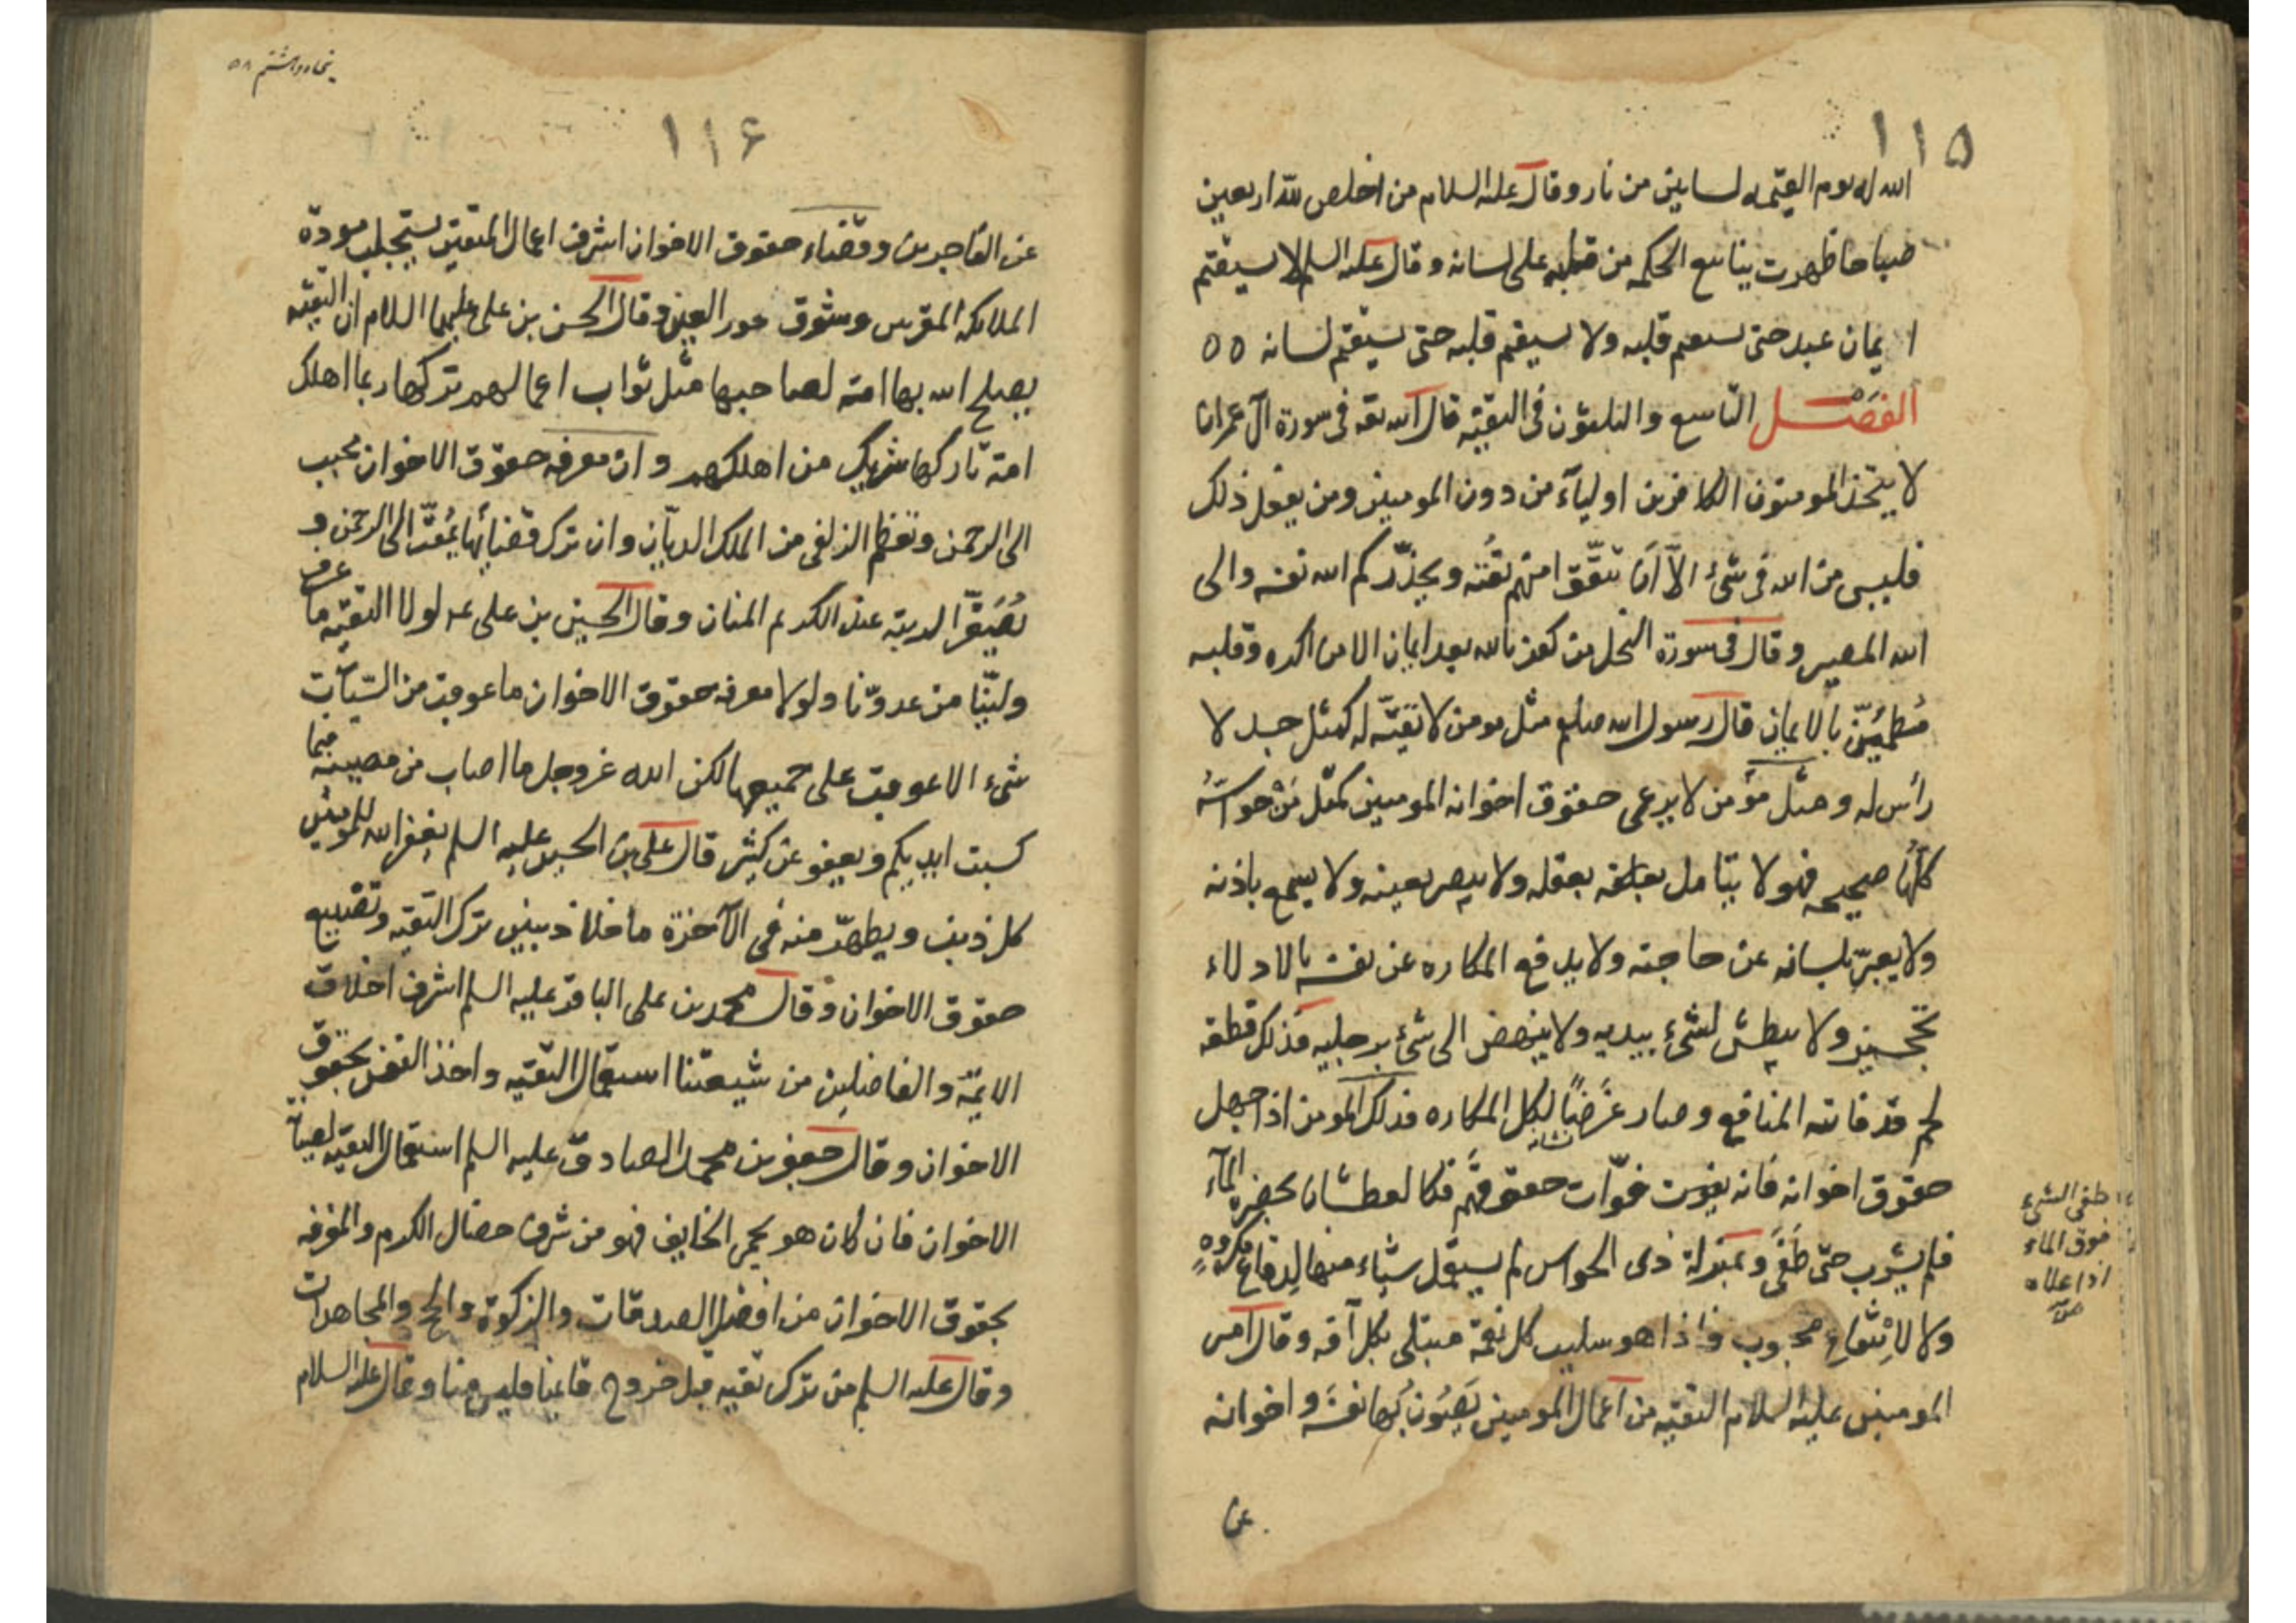 ١١٥
الله له يوم القيمه لسانين من نار وقال عليه السلام من اخلص لله اربعين
صباحا ظهرت ينابيع الحكمه من قلبه على لسانه وقال عليه السلم لا يستقيم
ايمان عبد حتى يستقيم قلبه ولا يستقيم قلبه حتى يستقيم لسانه ه ه
الفصل التاسع والثلثون فى التقيّه قال الله تعه فى سورة آل عمران
لا يتخذ المومنون الكافرين اوليآء من دون المومنين ومن يفعل ذلك
فليس من الله فى شئ الاّ اَن تتّقوا منهم تقته ويحذّركم الله نفسه والى
الله المصير وقال فى سورة النحل من كفر بالله بعد ايمانه الا من اكره وقلبه
مُطمئِنّ بالايمان قال رسول الله صلعم مثل مومن لا تقيّه له كمثل جسد لا
رأس له ومثل مؤمن لا يرعى حقوق اخوانه المومنين كمثل مَنْ حواسّهُ
كلّها صحيحه فهو لا يتامل بعقله ولا يبصر بعينه ولا يسمع باذنه
ولا يعبّر بلسانه عن حاجته ولا يدفع المكاره عن نفسه بالادلاء
بحججه ولا يبطش لشئ بيديه ولا ينهض الى شئ برجليه فذلك قطعه
لحم قد فاتته المنافع وصار غَرَضًا لكل المكاره فذلك المومن اذا جهل
نشانه
حقوق اخوانه فانه يفوت ثوّاب حقوقهم فكالعطشان بحضره المآء
فلم يشرب حتّى طَفَى وبمنزلة ذى الحواس لم يستعمل شياء منها لِدفاعِ مكروهٍ
ولا لاِنتفاعِ محبوب فاذا هو سليب كل نعمة مبتلى بكل آفه وقال امير
المومنين عليه السلام التقيه من اعمال المومنين يَصُون بُها نفسَه واخوانه
عن
طفى الشئ
فوق الماء
اذا علاه
پنجاه وهشتم ٥٨
١١۶
عن الفاجرين وقضاء حقوق الاخوان اشرف اعمال المتقين يستجلب مودّة
الملائكه المقربين وشوق حور العين وقال الحسن بن على عليهما السلام ان التقيّه
يصلح الله بها امّته لصاحبها مثل ثواب اعمالهم تركها ربما اهلك
امته تاركها شريك من اهلكهم وان معرفه حقوق الاخوان تحبب
الى الرحمن وتعظم الزلفى من الملك الديّان وان ترك قضائها يُمقّت الى الرحمن و
يُصَغّر الرتبة عند الكريم المنان وقال الحسين بن على عم لولا التقيّه ما عرف
وليّنا من عدوّنا ولولا معرفه حقوق الاخوان ما عوقبت من السيّآت
شئ الا عوقبت على جميعها لكن الله عز وجل ما اصاب من مصيبه فبما
كسبت ايديكم ويعفو عن كثير قال على بن الحسين عليه السلم يغفر الله للمومنين
كل ذنب ويطهّر منه فى الآخرة ما خلا ذنبين ترك التقيّه وتضييع
حقوق الاخوان وقال محمد بن على الباقر عليه السلم اشرف اخلاق
الايمّه والفاضلين من شيعتنا استعمال التقيه واخذ النفس بحقوق
الاخوان وقال جعفر بن محمد الصادق عليه السلم استعمال التقيّه لصيانة
الاخوان فان كان هو يحمى الخايف فهو من شرف خصال الكرم والمعرفه
بحقوق الاخوان من افضل الصدقات والزكوة والحج والمجاهدات
وقال عليه السلم من ترك تقيه قبل خروج قائمنا فليس منا وقال عليه السلام